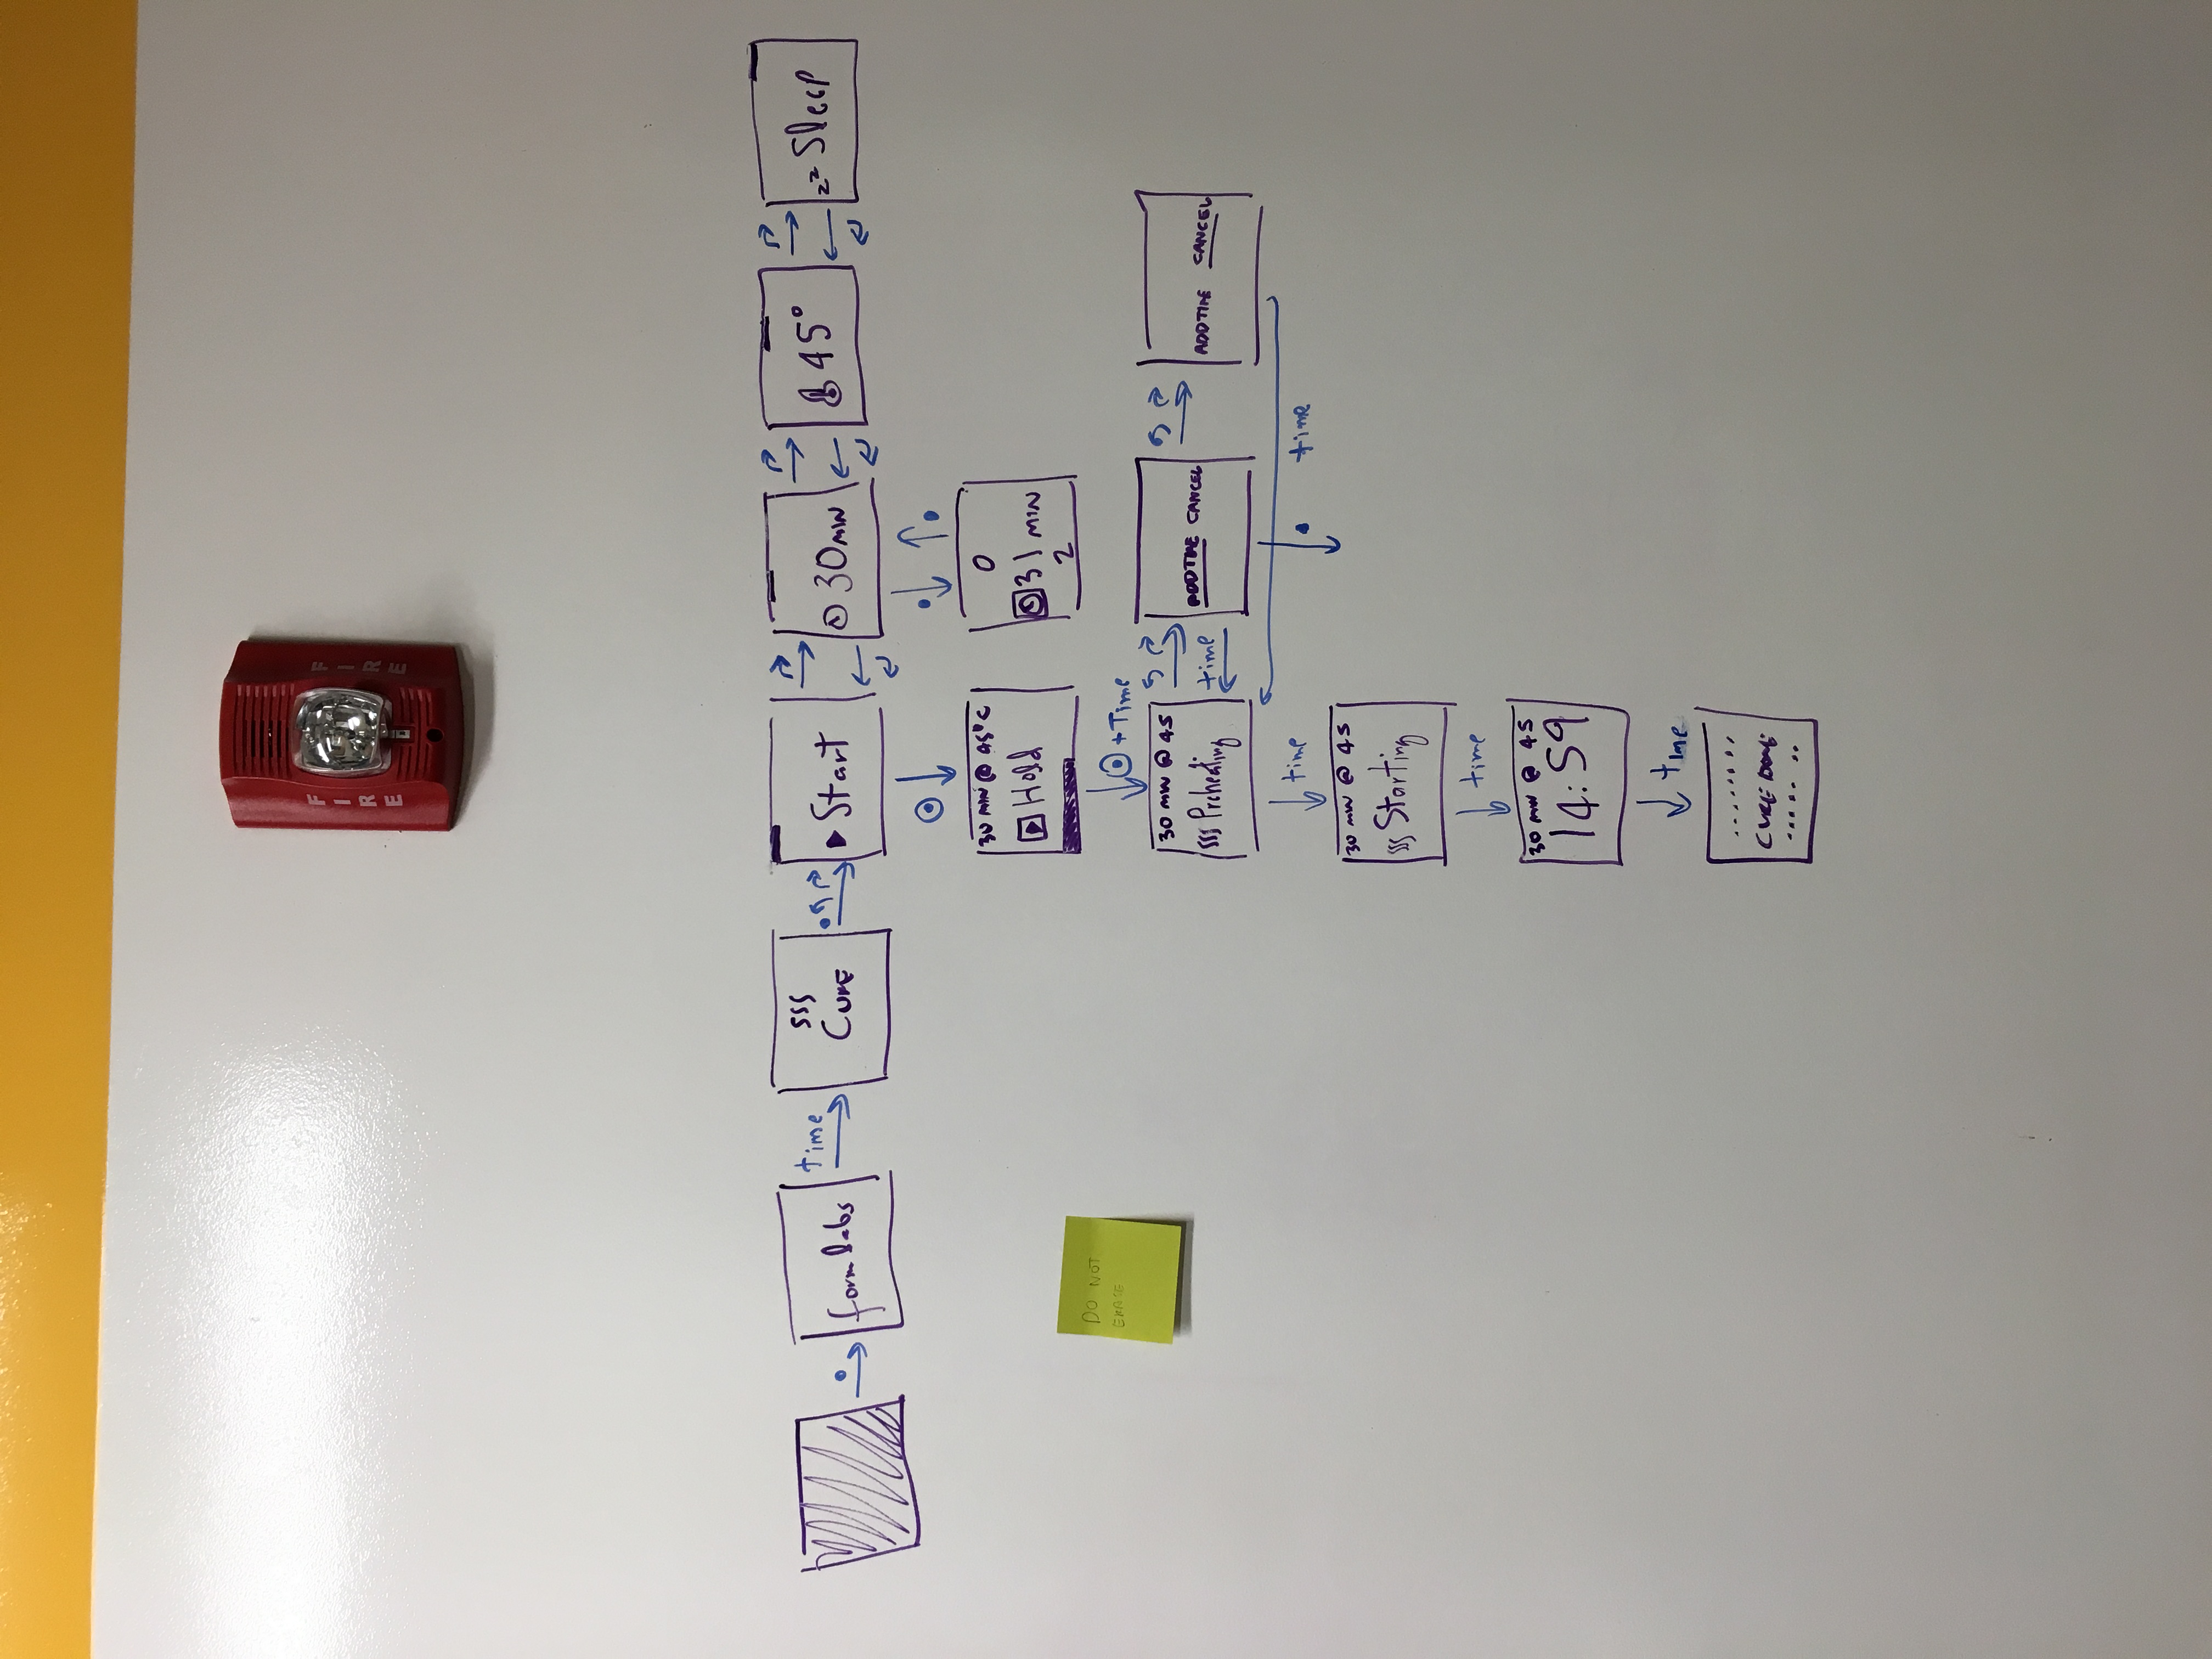 FIRE
FIRE
formlabs
time
SSS
CURE
Start
30 MIN
45°
zz Sleep
30 MIN @ 45°C
Hold
0
31 MIN
2
+ Time
30 MIN @ 45
SSS Preheating
time
ADD TIME CANCEL
ADD TIME CANCEL
time
time
30 MIN @ 45
SSS Starting
time
30 MIN @ 45
14:59
time
CURE DONE
DO NOT
ERASE